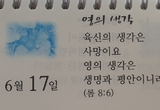 영의 생각
육신의 생각은
사망이요
영의 생각은
생명과 평안이니라
(롬 8:6)
6월 17일